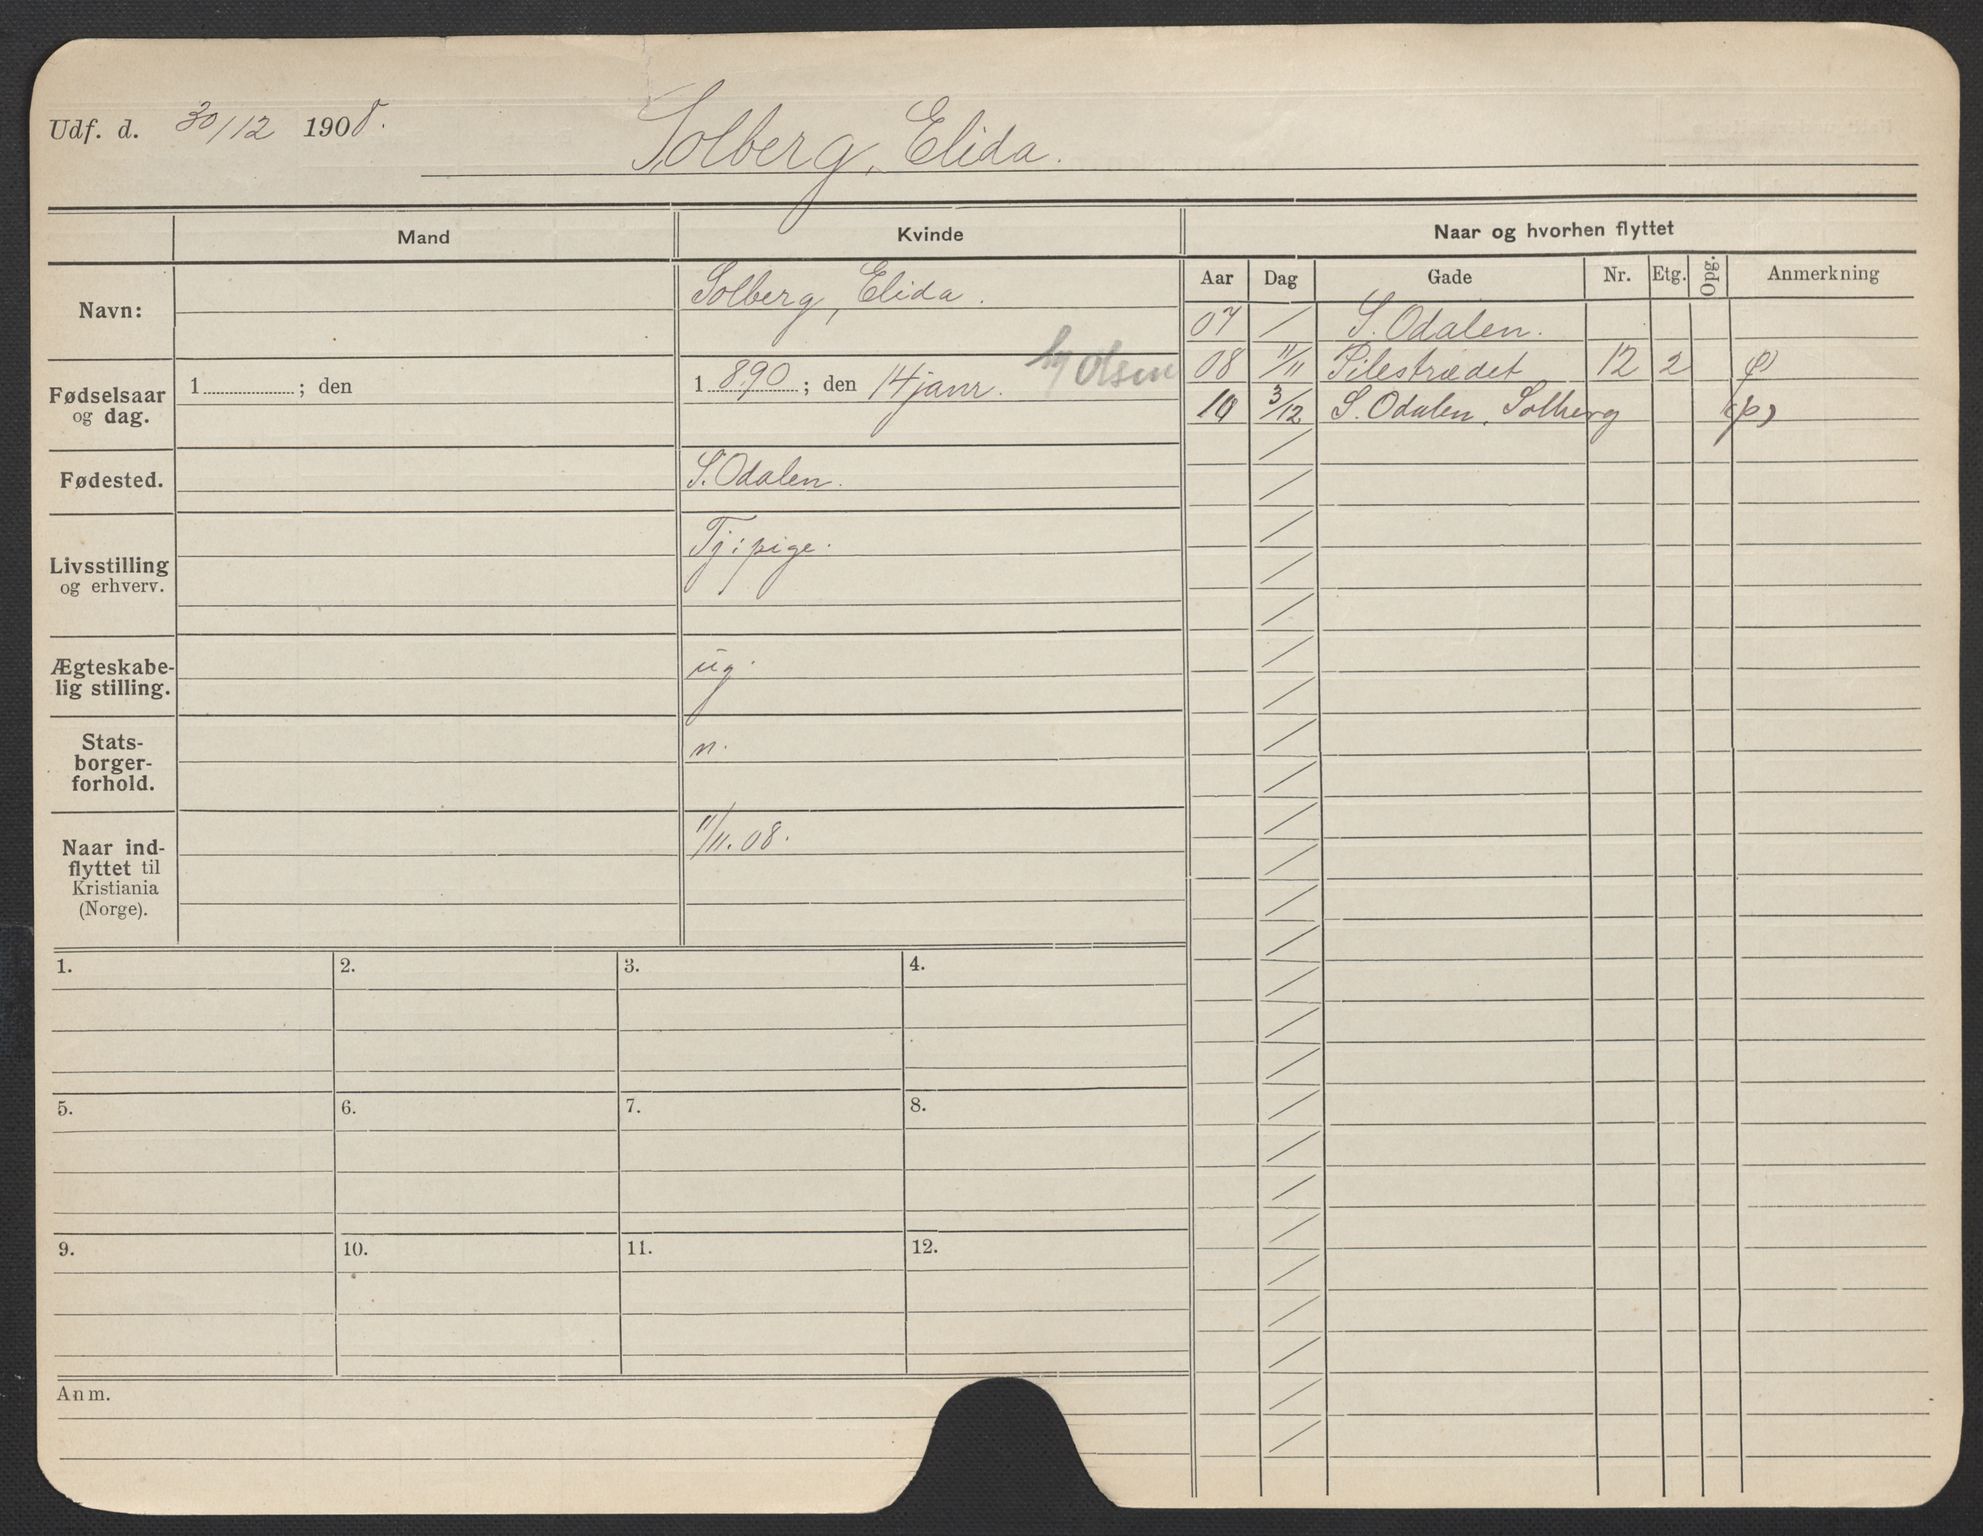 Udf. d. 30/12 1908.
Solberg, Elida.
Mand
Kvinde
Naar og hvorhen flyttet
Aar Dag Gade Nr. Etg. Opg. Anmerkning
Navn:
Solberg, Elida.
07 / S. Odalen.
08 11/11 Pilestrædet 12 2
10 3/12 S. Odalen, Solberg (p)
Fødselsaar
og dag.
1 ; den
1 890 ; den 14 janr.
Olsen
Fødested.
S. Odalen.
Livsstilling
og erhverv.
Tj: pige.
Ægteskabe-
lig stilling.
ug.
Stats-
borger-
forhold.
n.
Naar ind-
flyttet til
Kristiania
(Norge).
11/11. 08.
1. 2. 3. 4.
5. 6. 7. 8.
9. 10. 11. 12.
Anm.